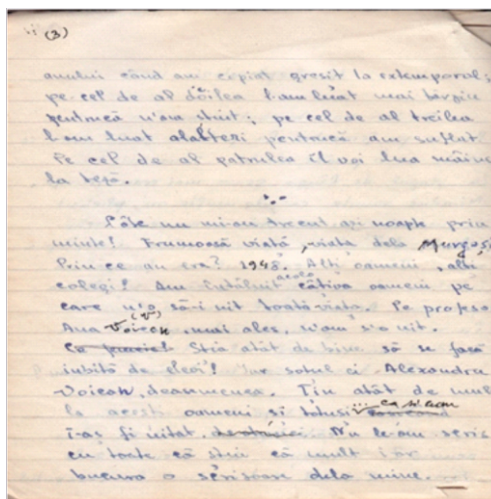 (3)
anului când am copiat greșit la extemporal;
pe cel de al doilea l-am luat mai târziu
pentrucă n'am știut; pe cel de al treilea
l-am luat alaltăeri pentrucă am suflat.
Pe cel de al patrulea îl voi lua mâine
la teză.
Câte nu mi-au trecut azi noapte prin
minte! Frumoasă viață, viața dela Murguș
Prin ce an era? 1948. Alți oameni, alți
colegi! Am întâlnit acolo câțiva oameni pe
care n'o să-i uit toată viața. Pe profeso
Ana Voicou (V), mai ales, n'am s'o uit.
Știa atât de bine să se facă
iubită de elevi! Iar soțul ei, Alexandru
Voicou, deasemenea. Țin atât de mul
la acești oameni și totuși ... ca și cum
i-aș fi uitat. Nu le-am scris
cu toate că știu că mult i-ar
bucura o scrisoare dela mine.